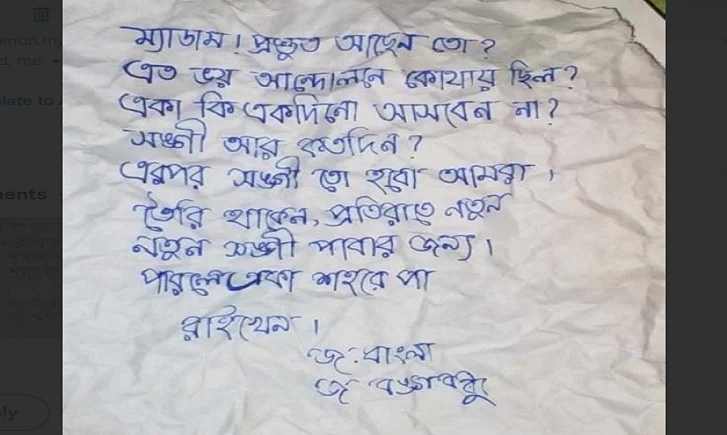 ম্যাডাম! প্রস্তুত আছেন তো?
এত ভয় আন্দোলনে কোথায় ছিল?
একা কি একদিনো আসবেন না?
সঙ্গী আর কতদিন?
এরপর সঙ্গী তো হবো আমরা,
তৈরি থাকেন, প্রতিরাতে নতুন
নতুন সঙ্গী পাবার জন্য।
পারলে একা শহরে পা
রাইখেন।
জ: বাংলা
জ বঙ্গবন্ধু